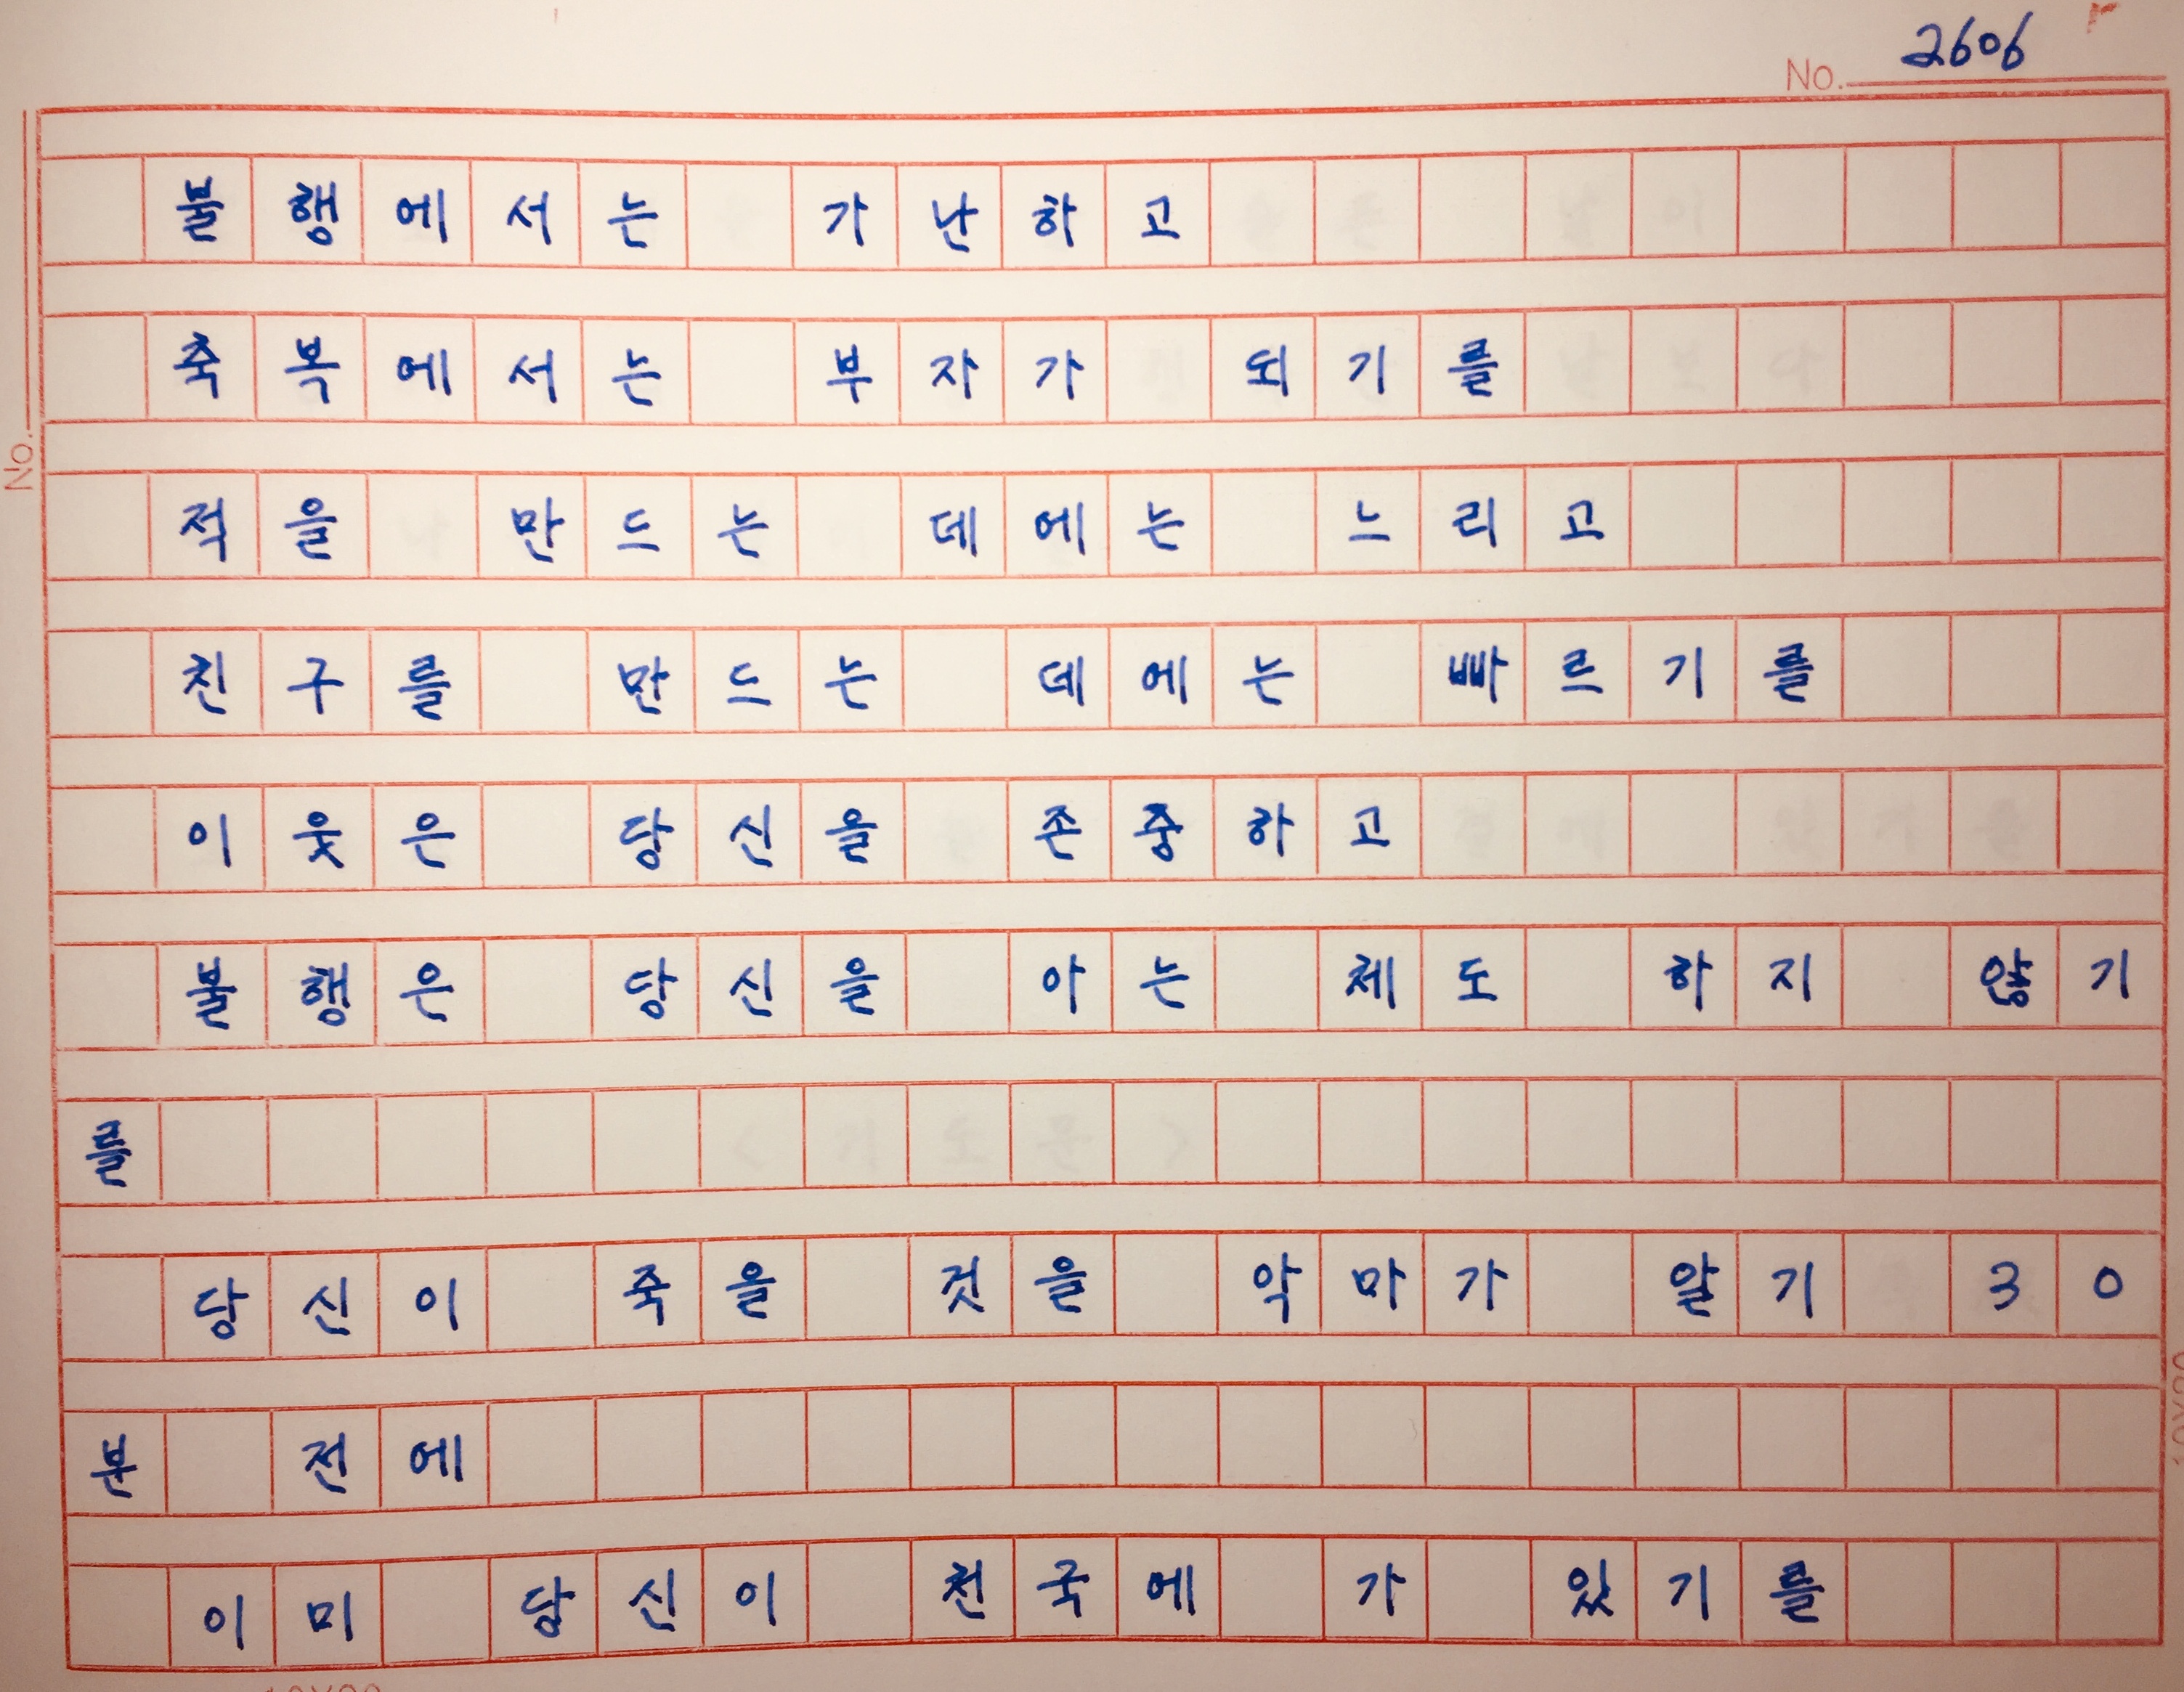 No. 2606
불행에서는 가난하고
축복에서는 부자가 되기를
적을 만드는 데에는 느리고
친구를 만드는 데에는 빠르기를
이웃은 당신을 존중하고
불행은 당신을 아는 체도 하지 않기
를
당신이 죽을 것을 악마가 알기 30
분 전에
이미 당신이 천국에 가 있기를
No.